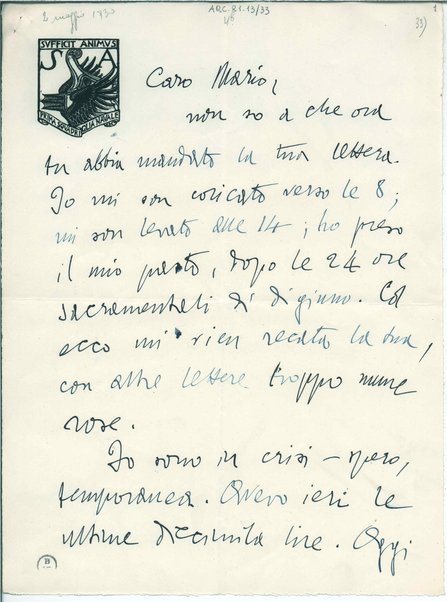 2 maggio 1930
ARC.21.13/33
1
46
33)
SVFFICIT ANIMVS
S A
PRIMA SQVADRIGLIA NAVALE
Caro Mario,
non so a che ora
tu abbia mandato la tua lettera.
Io mi son coricato verso le 8;
mi son levato alle 14; ho preso
il mio pasto, dopo le 24 ore
sacramentali di digiuno. Ed
ecco mi vien recata la tua,
con altre lettere troppo nume
rose.
Io sono in crisi – spero,
temporanea. Avevo ieri le
ultime diecimila lire. Oggi
B